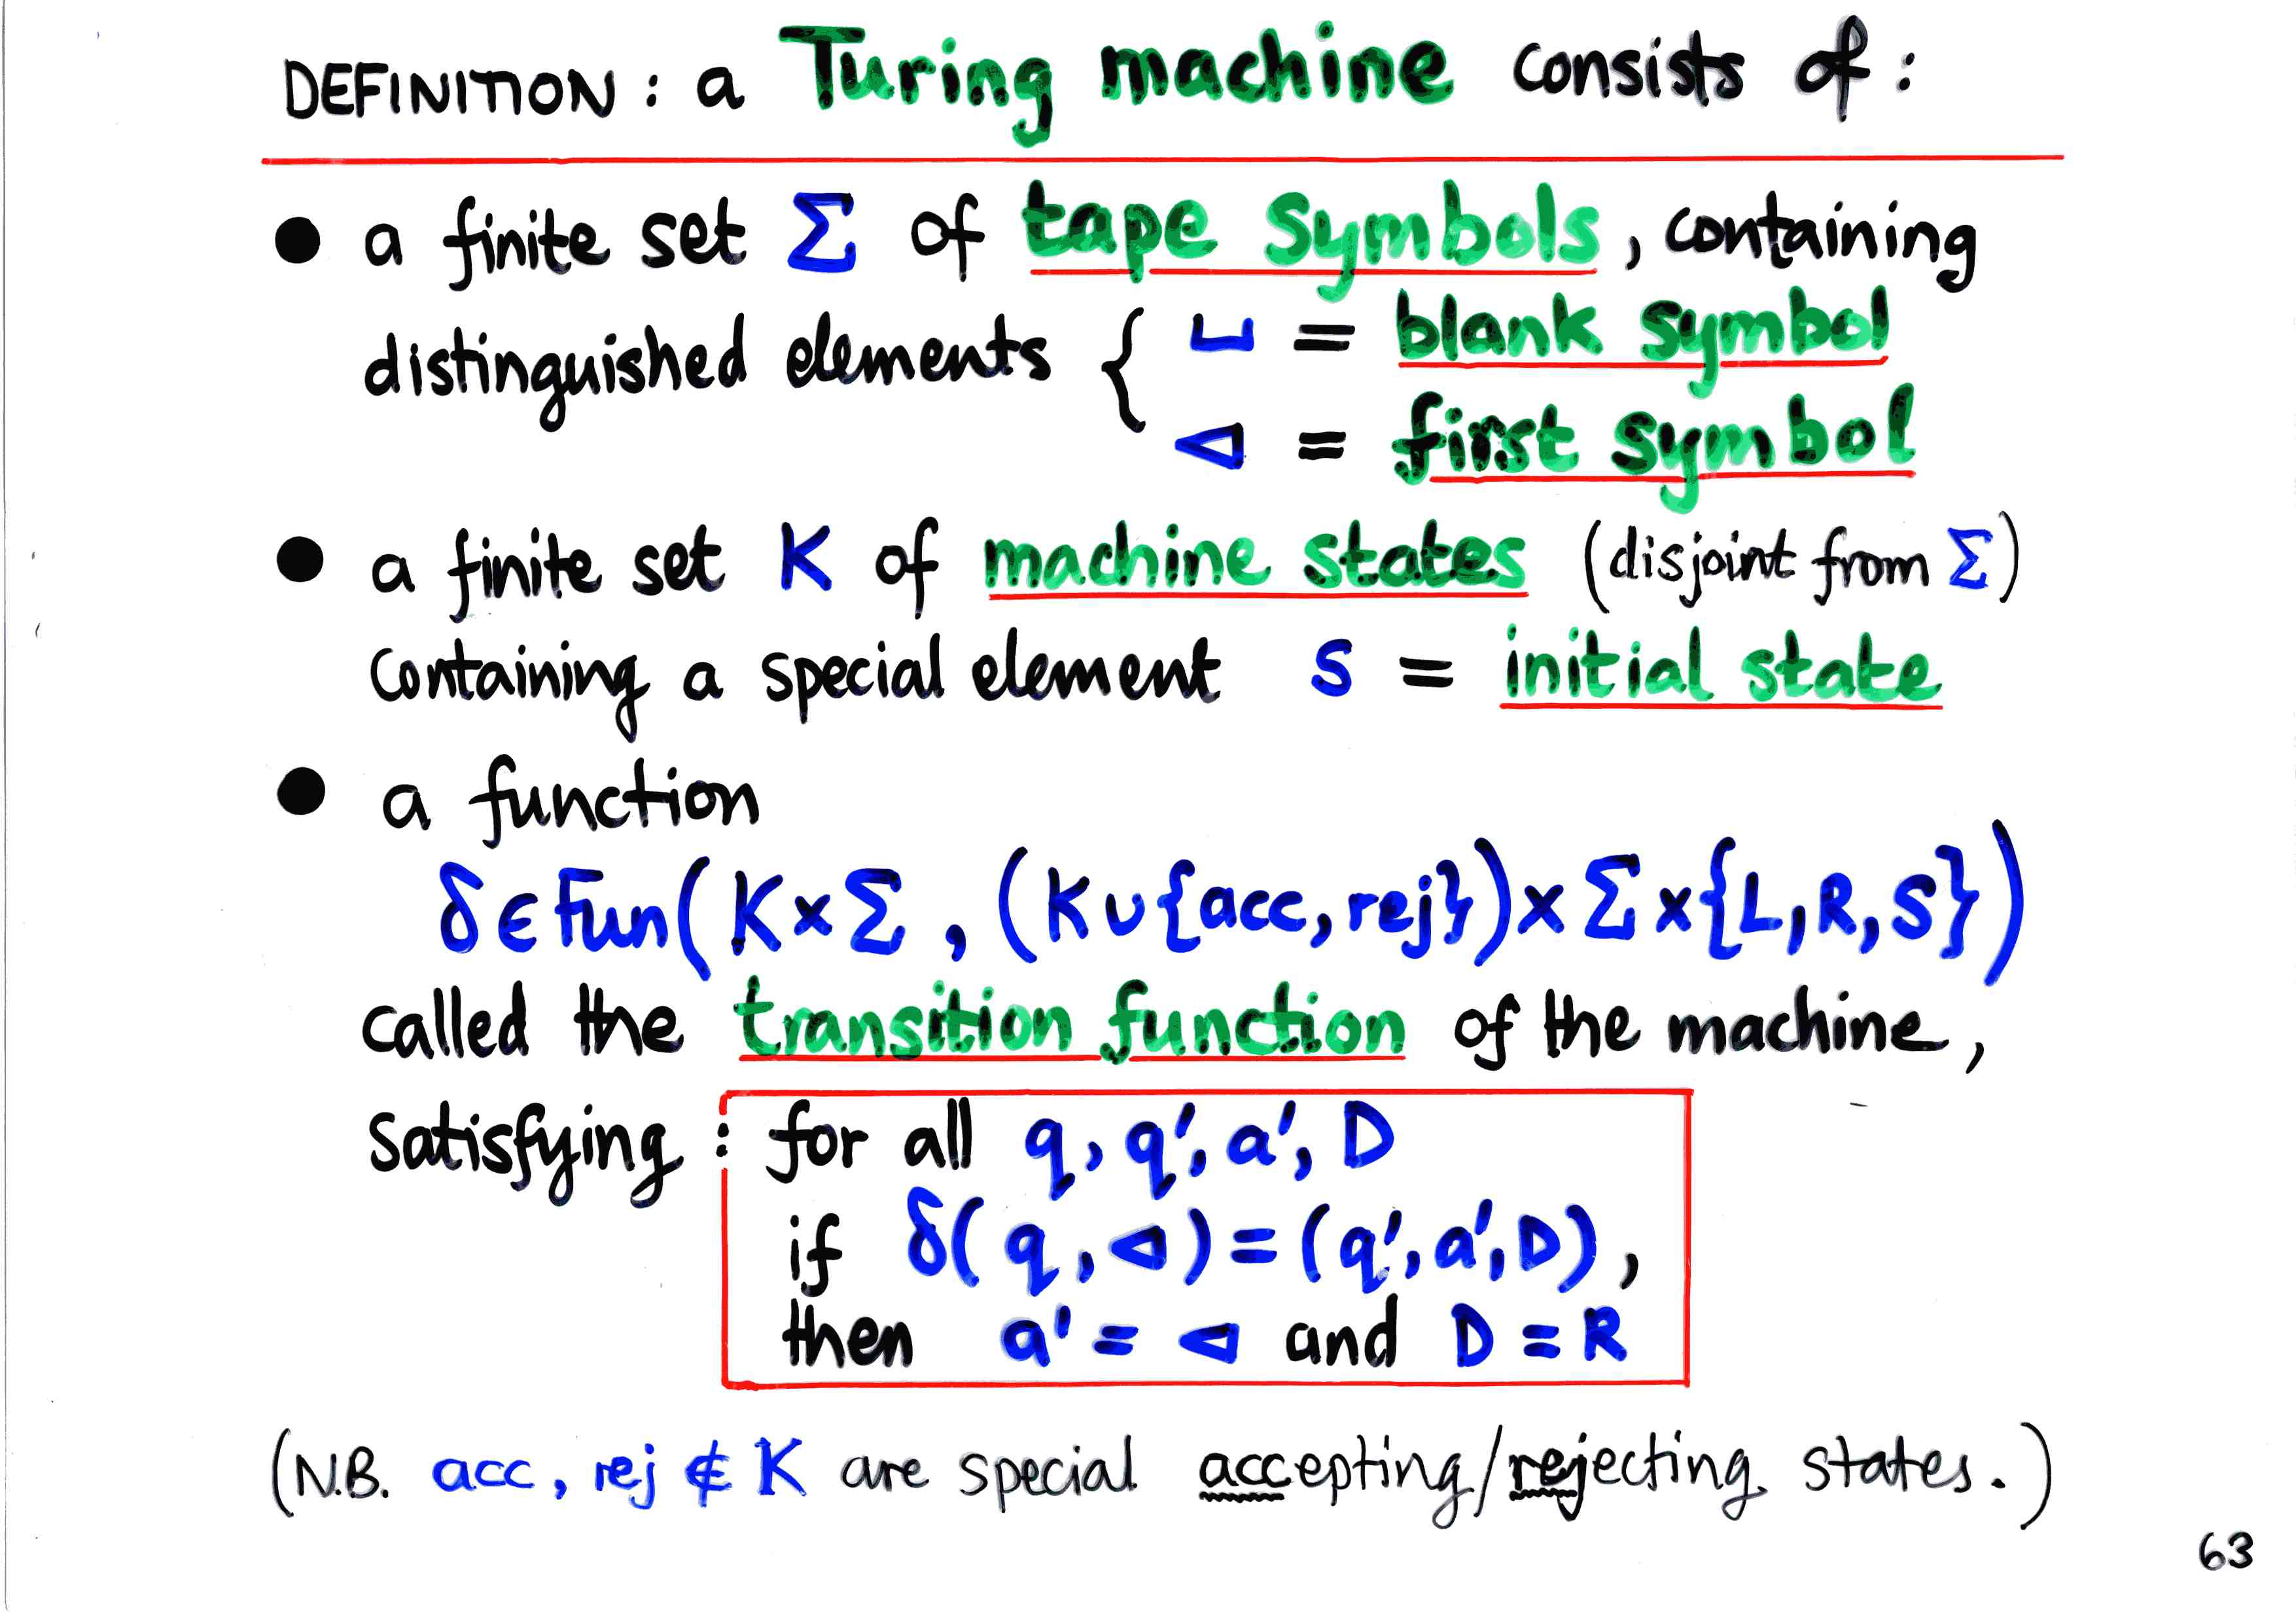 DEFINITION : a Turing machine consists of :
● a finite set Σ of tape symbols, containing
distinguished elements { ⊔ = blank symbol
◁ = first symbol
● a finite set K of machine states (disjoint from Σ)
containing a special element s = initial state
● a function
δ ∈ Fun(K×Σ, (K∪{acc,rej})×Σ×{L,R,S})
called the transition function of the machine,
satisfying : for all q, q', a', D
if δ(q, ◁) = (q', a', D),
then a' = ◁ and D = R
(N.B. acc, rej ∉ K are special accepting/rejecting states.)
63